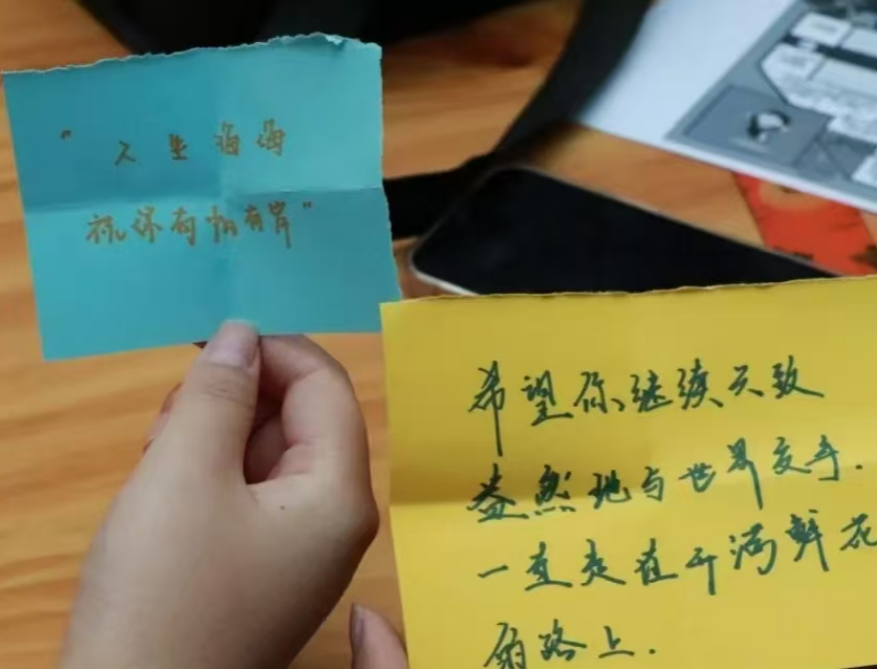 "人生海海
祝你有帆有岸"
希望你继续兴致
盎然地与世界交手.
一直走在开满鲜花
的路上.